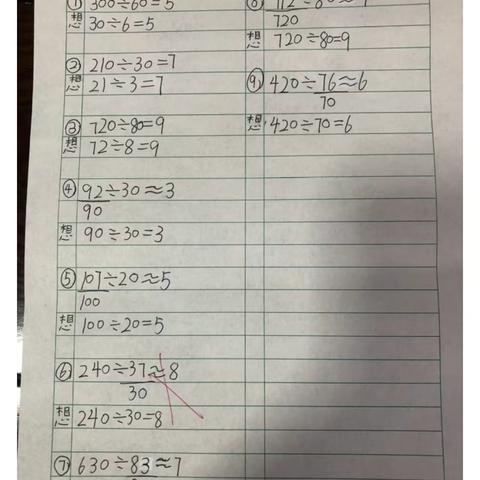 ① 300÷60=5
想 30÷6=5
② 210÷30=7
21÷3=7
③ 720÷80=9
想 72÷8=9
④ 92÷30≈3
90
想 90÷30=3
⑤ 107÷20≈5
100
想 100÷20=5
⑥ 240÷37≈8
30
想 240÷30=8
⑦ 630÷83≈7
⑧ 712÷80≈9
720
想 720÷80=9
⑨ 420÷76≈6
70
想 420÷70=6